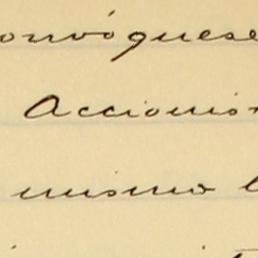 onvóquese
Accionis
mismo